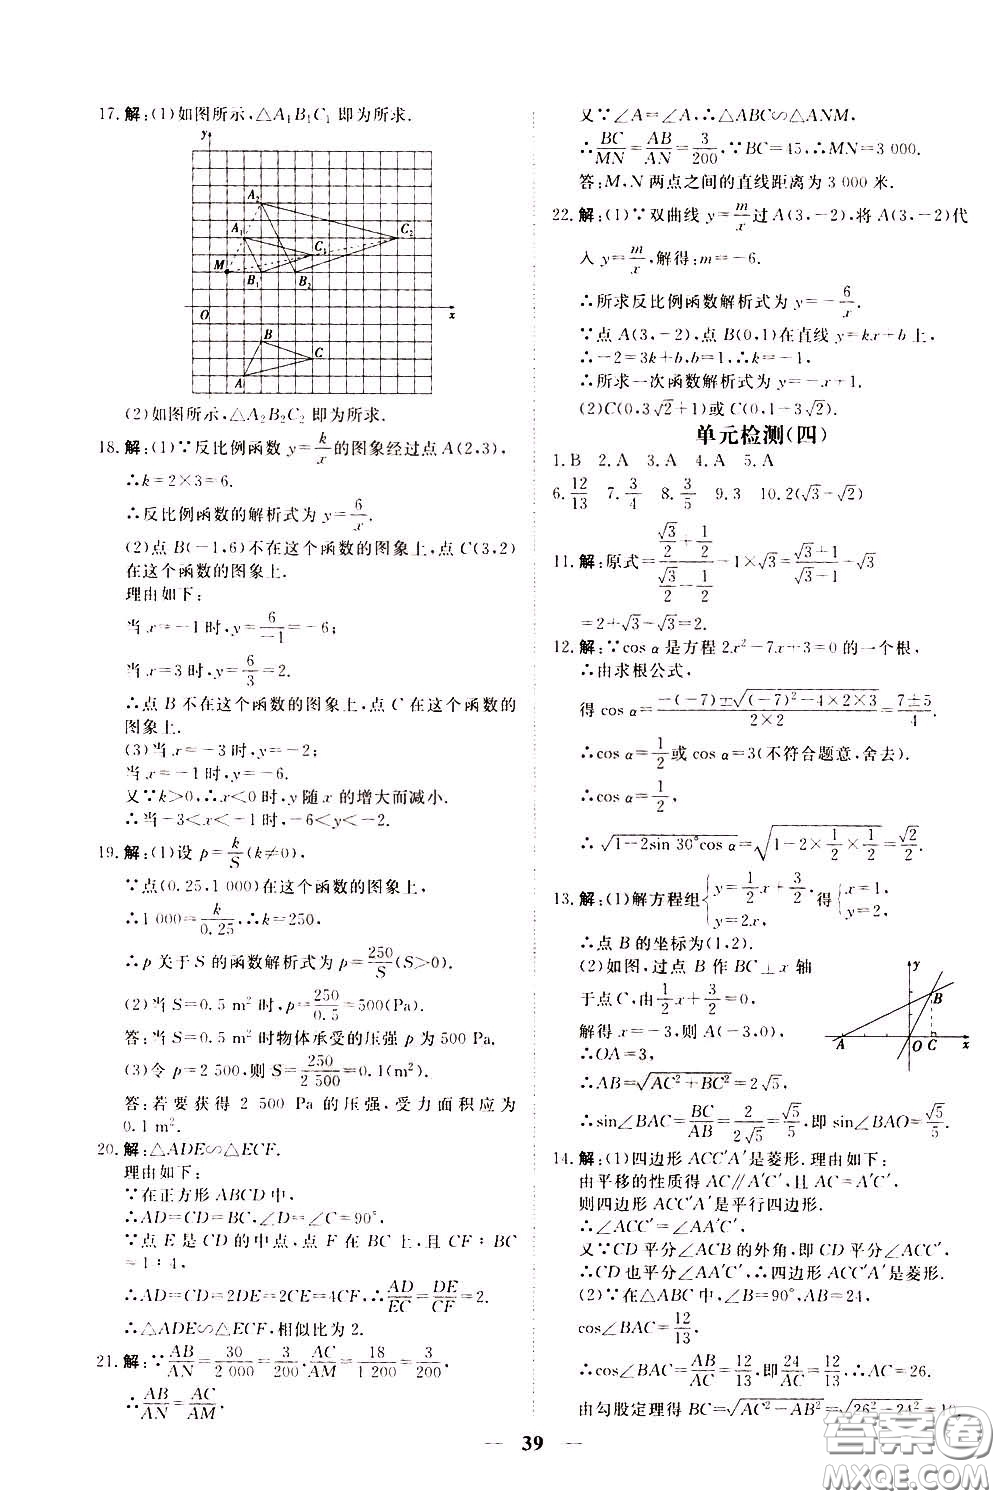 17. 解:(1)如图所示,△A₁B₁C₁ 即为所求.
y
A₂
A₁
C₂
C₁
M
B₁
B₂
O
x
B
C
A
(2)如图所示,△A₂B₂C₂ 即为所求.
18. 解:(1)∵反比例函数 y=k/x 的图象经过点 A(2,3),
∴k=2×3=6.
∴反比例函数的解析式为 y=6/x.
(2)点 B(-1,6)不在这个函数的图象上,点 C(3,2)
在这个函数的图象上.
理由如下:
当 x=-1 时,y=6/-1=-6;
当 x=3 时,y=6/3=2.
∴点 B 不在这个函数的图象上,点 C 在这个函数的
图象上.
(3)当 x=-3 时,y=-2;
当 x=-1 时,y=-6.
又∵k>0,∴x<0 时,y 随 x 的增大而减小.
∴当-3<x<-1 时,-6<y<-2.
19. 解:(1)设 p=k/S(k≠0),
∵点(0.25,1 000)在这个函数的图象上,
∴1 000=k/0.25,∴k=250,
∴p 关于 S 的函数解析式为 p=250/S(S>0).
(2)当 S=0.5 m² 时,p=250/0.5=500(Pa).
答:当 S=0.5 m² 时物体承受的压强 p 为 500 Pa.
(3)令 p=2 500,则 S=250/2 500=0.1(m²).
答:若要获得 2 500 Pa 的压强,受力面积应为
0.1 m².
20. 解:△ADE∽△ECF.
理由如下:
∵在正方形 ABCD 中,
∴AD=CD=BC,∠D=∠C=90°,
∵点 E 是 CD 的中点,点 F 在 BC 上,且 CF∶BC
=1∶4,
∴AD=CD=2DE=2CE=4CF,∴AD/EC=DE/CF=2.
∴△ADE∽△ECF,相似比为 2.
21. 解:∵AB/AN=30/2 000=3/200,AC/AM=18/1 200=3/200,
∴AB/AN=AC/AM.
又∵∠A=∠A,∴△ABC∽△ANM,
∴BC/MN=AB/AN=3/200,∵BC=45,∴MN=3 000.
答:M,N 两点之间的直线距离为 3 000 米.
22. 解:(1)∵双曲线 y=m/x 过 A(3,-2),将 A(3,-2)代
入 y=m/x,解得:m=-6.
∴所求反比例函数解析式为 y=-6/x.
∵点 A(3,-2),点 B(0,1)在直线 y=kx+b 上,
∴-2=3k+b,b=1,∴k=-1,
∴所求一次函数解析式为 y=-x+1.
(2)C(0,3√2+1)或 C(0,1-3√2).
单元检测(四)
1. B 2. A 3. A 4. A 5. A
6. 12/13 7. 3/4 8. 3/5 9. 3 10. 2(√3-√2)
11. 解:原式=(√3/2+1/2)/(√3/2-1/2)-1×√3=(√3+1)/(√3-1)-√3
=2+√3-√3=2.
12. 解:∵cos α是方程 2x²-7x+3=0 的一个根,
∴由求根公式,
得 cos α=(-(-7)±√((-7)²-4×2×3))/(2×2)=(7±5)/4.
∴cos α=1/2或 cos α=3(不符合题意,舍去).
∴cos α=1/2,
∴√(1-2sin 30°cos α)=√(1-2×1/2×1/2)=√2/2.
13. 解:(1)解方程组{y=1/2x+3/2, y=2x, 得{x=1, y=2,
∴点 B 的坐标为(1,2).
(2)如图,过点 B 作 BC⊥x 轴
于点 C,由1/2x+3/2=0,
解得 x=-3,则 A(-3,0),
∴OA=3,
∴AB=√(AC²+BC²)=2√5,
∴sin∠BAC=BC/AB=2/(2√5)=√5/5,即 sin∠BAO=√5/5.
y
B
A
O
C
x
14. 解:(1)四边形 ACC′A′是菱形.理由如下:
由平移的性质得 AC∥A′C′,且 AC=A′C′,
则四边形 ACC′A′是平行四边形.
∴∠ACC′=∠AA′C′,
又∵CD 平分∠ACB 的外角,即 CD 平分∠ACC′,
∴CD 也平分∠AA′C′,∴四边形 ACC′A′是菱形.
(2)∵在△ABC 中,∠B=90°,AB=24,
cos∠BAC=12/13,
∴cos∠BAC=AB/AC=12/13,即24/AC=12/13,∴AC=26.
由勾股定理得 BC=√(AC²-AB²)=√(26²-24²)=10.
39
答案圈
MXQE.COM